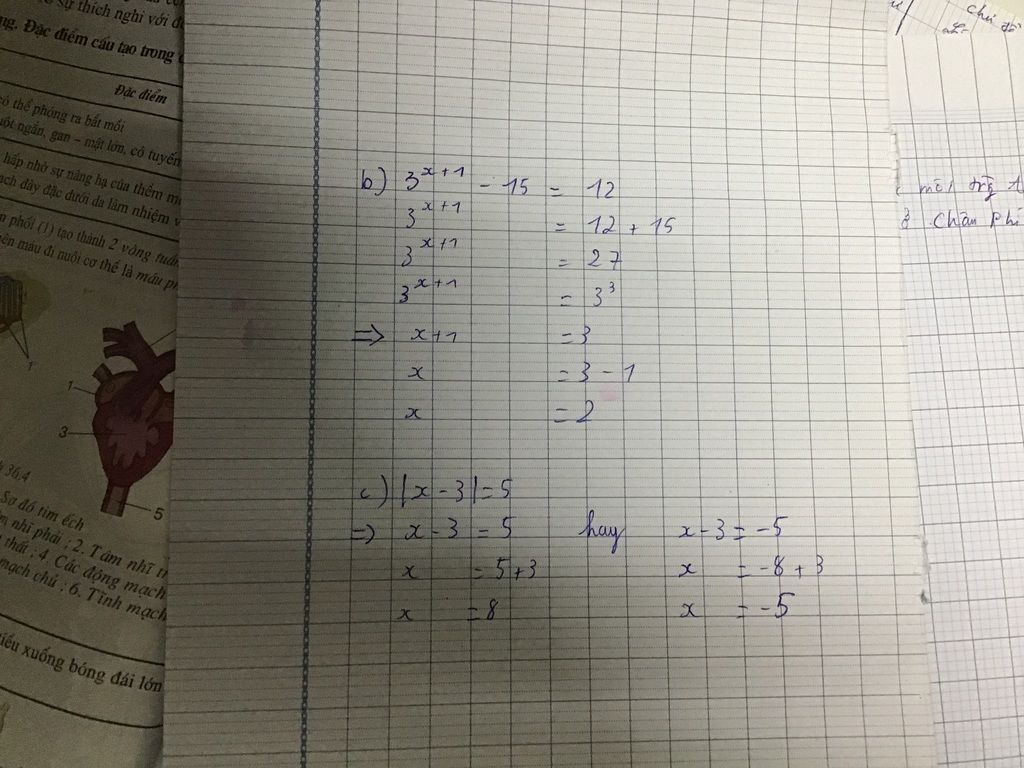 sự thích nghi với đ
ng. Đặc điểm cấu tạo trong
Đặc điểm
có thể phóng ra bắt mồi
uột ngắn, gan – mật lớn, có tuyến
hấp nhờ sự nâng hạ của thềm m
ạch dày đặc dưới da làm nhiệm v
n phổi (1) tạo thành 2 vòng tuần
nên máu đi nuôi cơ thể là máu ph
1
1
3
5
36.4
Sơ đồ tim ếch
m nhĩ phải ; 2. Tâm nhĩ tr
thất ; 4. Các động mạch
mạch chủ ; 6. Tĩnh mạch
tiểu xuống bóng đái lớn
b) 3^{x+1} - 15 = 12
3^{x+1} = 12 + 15
3^{x+1} = 27
3^{x+1} = 3^3
=> x+1 = 3
x = 3 - 1
x = 2
c) |x - 3| = 5
=> x - 3 = 5 hay x - 3 = -5
x = 5+3 x = -8 + 3
x = 8 x = -5